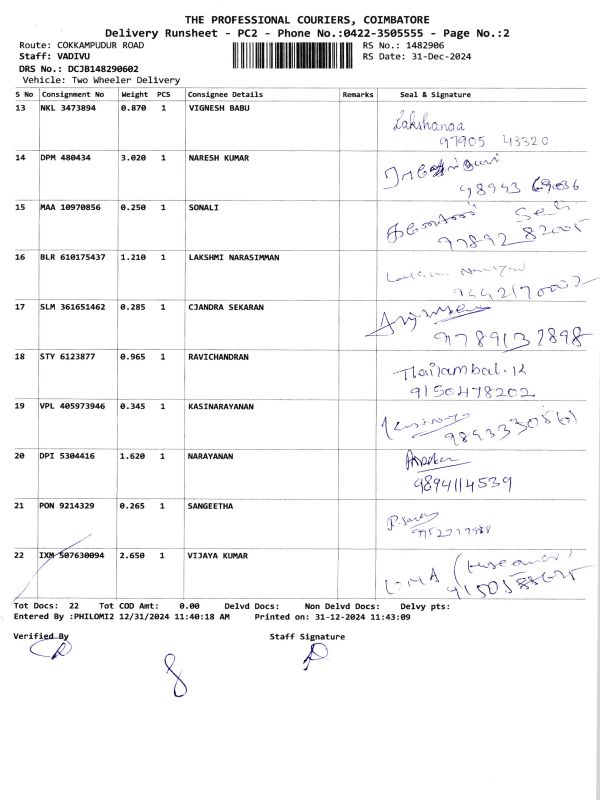 THE PROFESSIONAL COURIERS, COIMBATORE
Delivery Runsheet - PC2 - Phone No.:0422-3505555 - Page No.:2
Route: COKKAMPUDUR ROAD RS No.: 1482906
Staff: VADIVU RS Date: 31-Dec-2024
DRS No.: DCJB148290602
Vehicle: Two Wheeler Delivery
S No Consignment No Weight PCS Consignee Details Remarks Seal & Signature
13 NKL 3473894 0.870 1 VIGNESH BABU
Lakshanaa
97905 43320
14 DPM 480434 3.020 1 NARESH KUMAR
98943 69036
15 MAA 10970856 0.250 1 SONALI
97892 82005
16 BLR 610175437 1.210 1 LAKSHMI NARASIMMAN
9442170002
17 SLM 361651462 0.285 1 CJANDRA SEKARAN
9789137898
18 STY 6123877 0.965 1 RAVICHANDRAN
Thailambal.K
9150478202
19 VPL 405973946 0.345 1 KASINARAYANAN
20 DPI 5304416 1.620 1 NARAYANAN
9894114539
21 PON 9214329 0.265 1 SANGEETHA
22 IXM 507630094 2.650 1 VIJAYA KUMAR
UMA
Tot Docs: 22 Tot COD Amt: 0.00 Delvd Docs: Non Delvd Docs: Delvy pts:
Entered By :PHILOMI2 12/31/2024 11:40:18 AM Printed on: 31-12-2024 11:43:09
Verified By Staff Signature